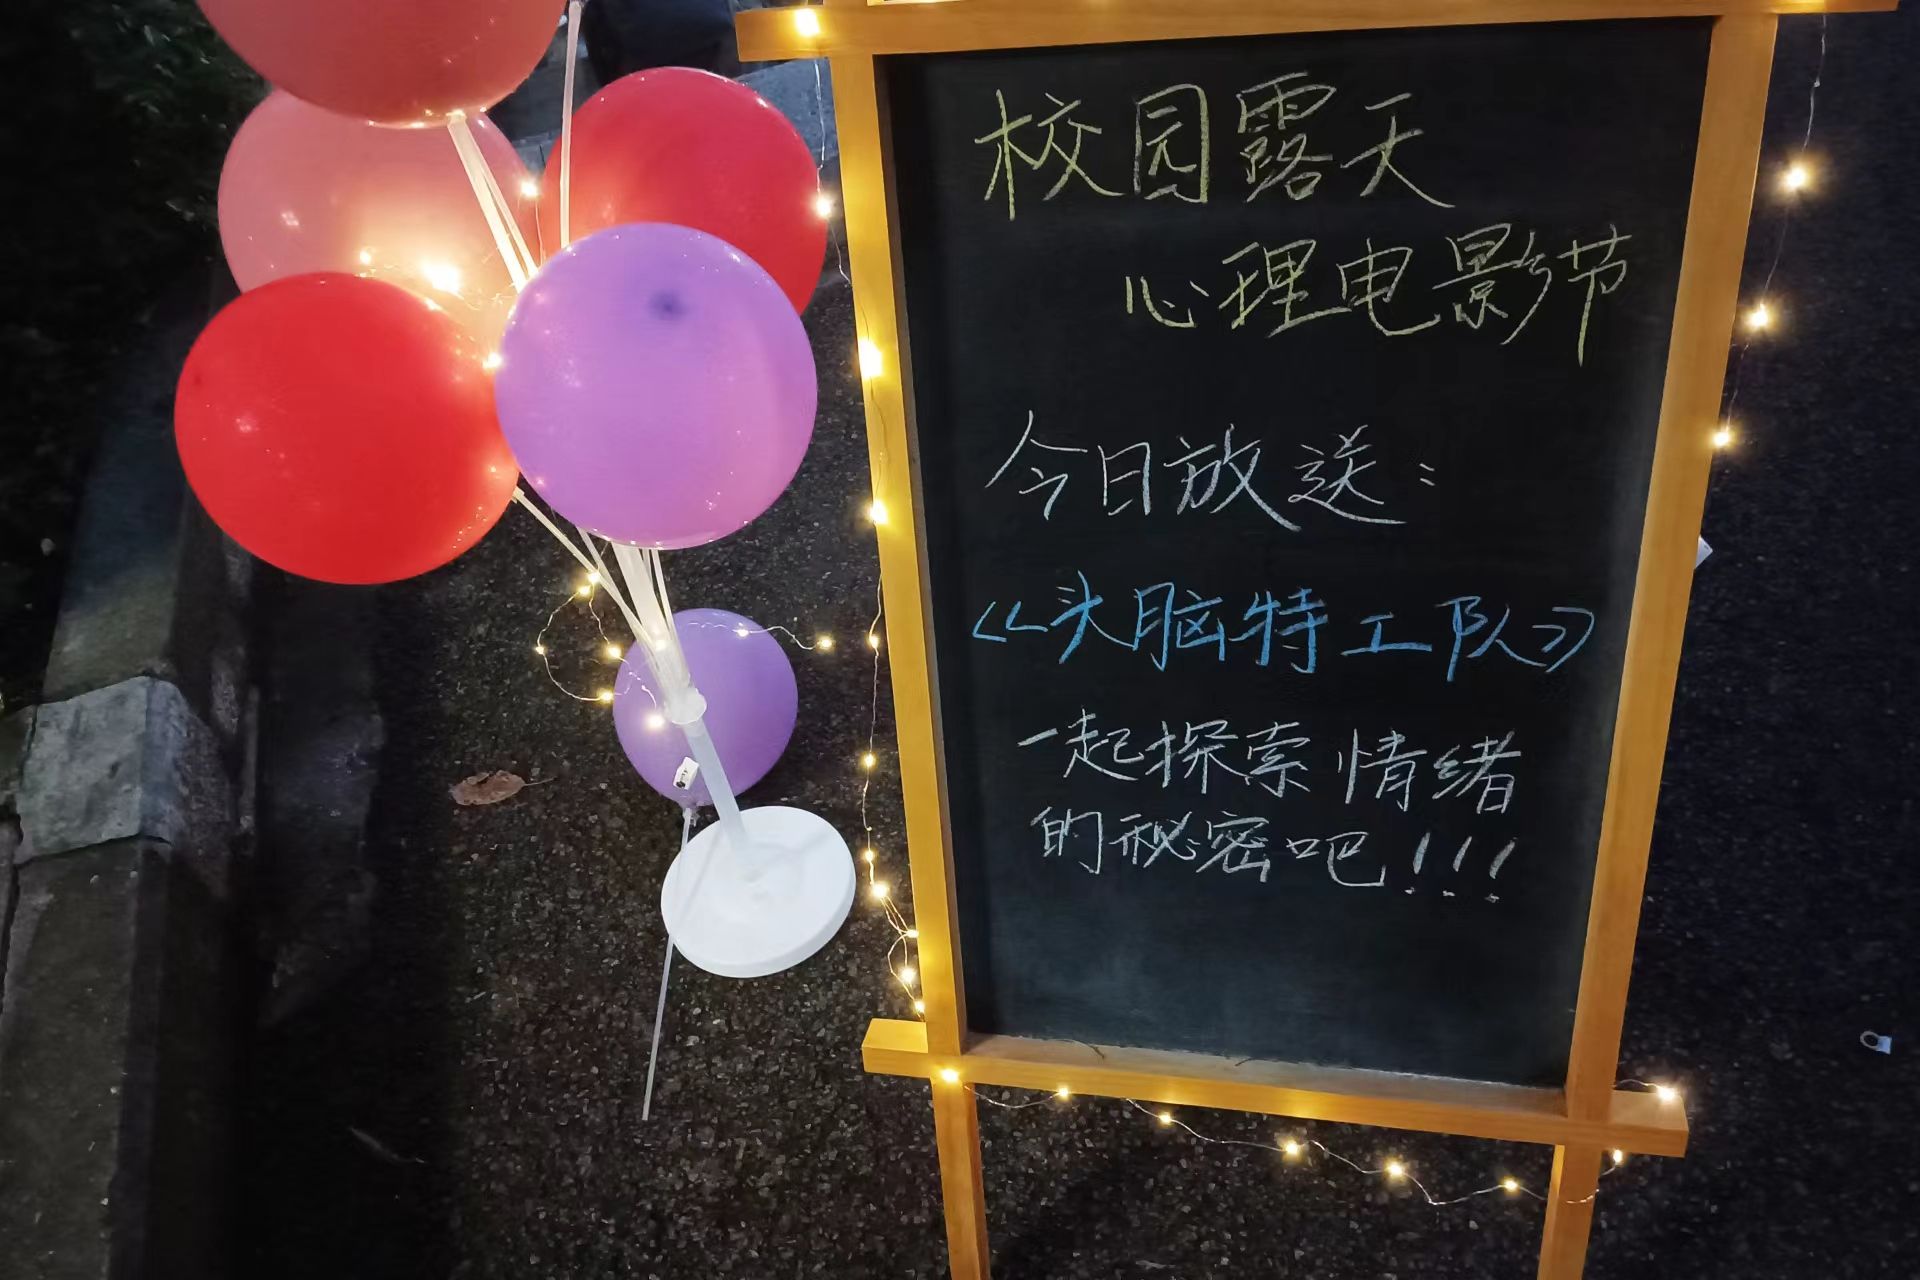 校园露天
心理电影节
今日放送：
《头脑特工队》
一起探索情绪
的秘密吧!!!